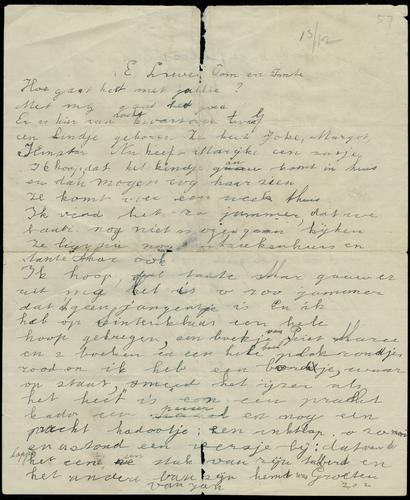 57
13/12
E. Lieve Oom en Tante
Hoe gaat het met jullie?
Met mij gaat het goed
Er is hier van nacht kwart over
een kindje geboren Ze heet Joke, Margot,
Nu heeft Marijke een zusje
Ik hoop, dat het kindje gauw komt in huis
en dan mogen wij haar zien
Ze komt over een week thuis
Ik vind het zo jammer, dat we
nog niet mogen gaan kijken
Ze liggen nog in het ziekenhuis en
tante Mar ook
Ik hoop, dat tante Mar gauw er
uit mag Het is o zoo jammer
dat 't geen jongentje is En ik
heb op Sinterklaas een hele
hoop gekregen, een boekje van Piet Maree
en 2 boeken en een hele plak
rood en ik heb een bordje, waar
op staat, smeed het ijzer als
het heet is en een pracht
kado een passer en nog een
pracht kadootje: een inktlap. o zo mooi
en er stond een versje bij: dat was
het eene een stuk van zijn tabberd en
het andere van zijn hemd Groeten
van Jan